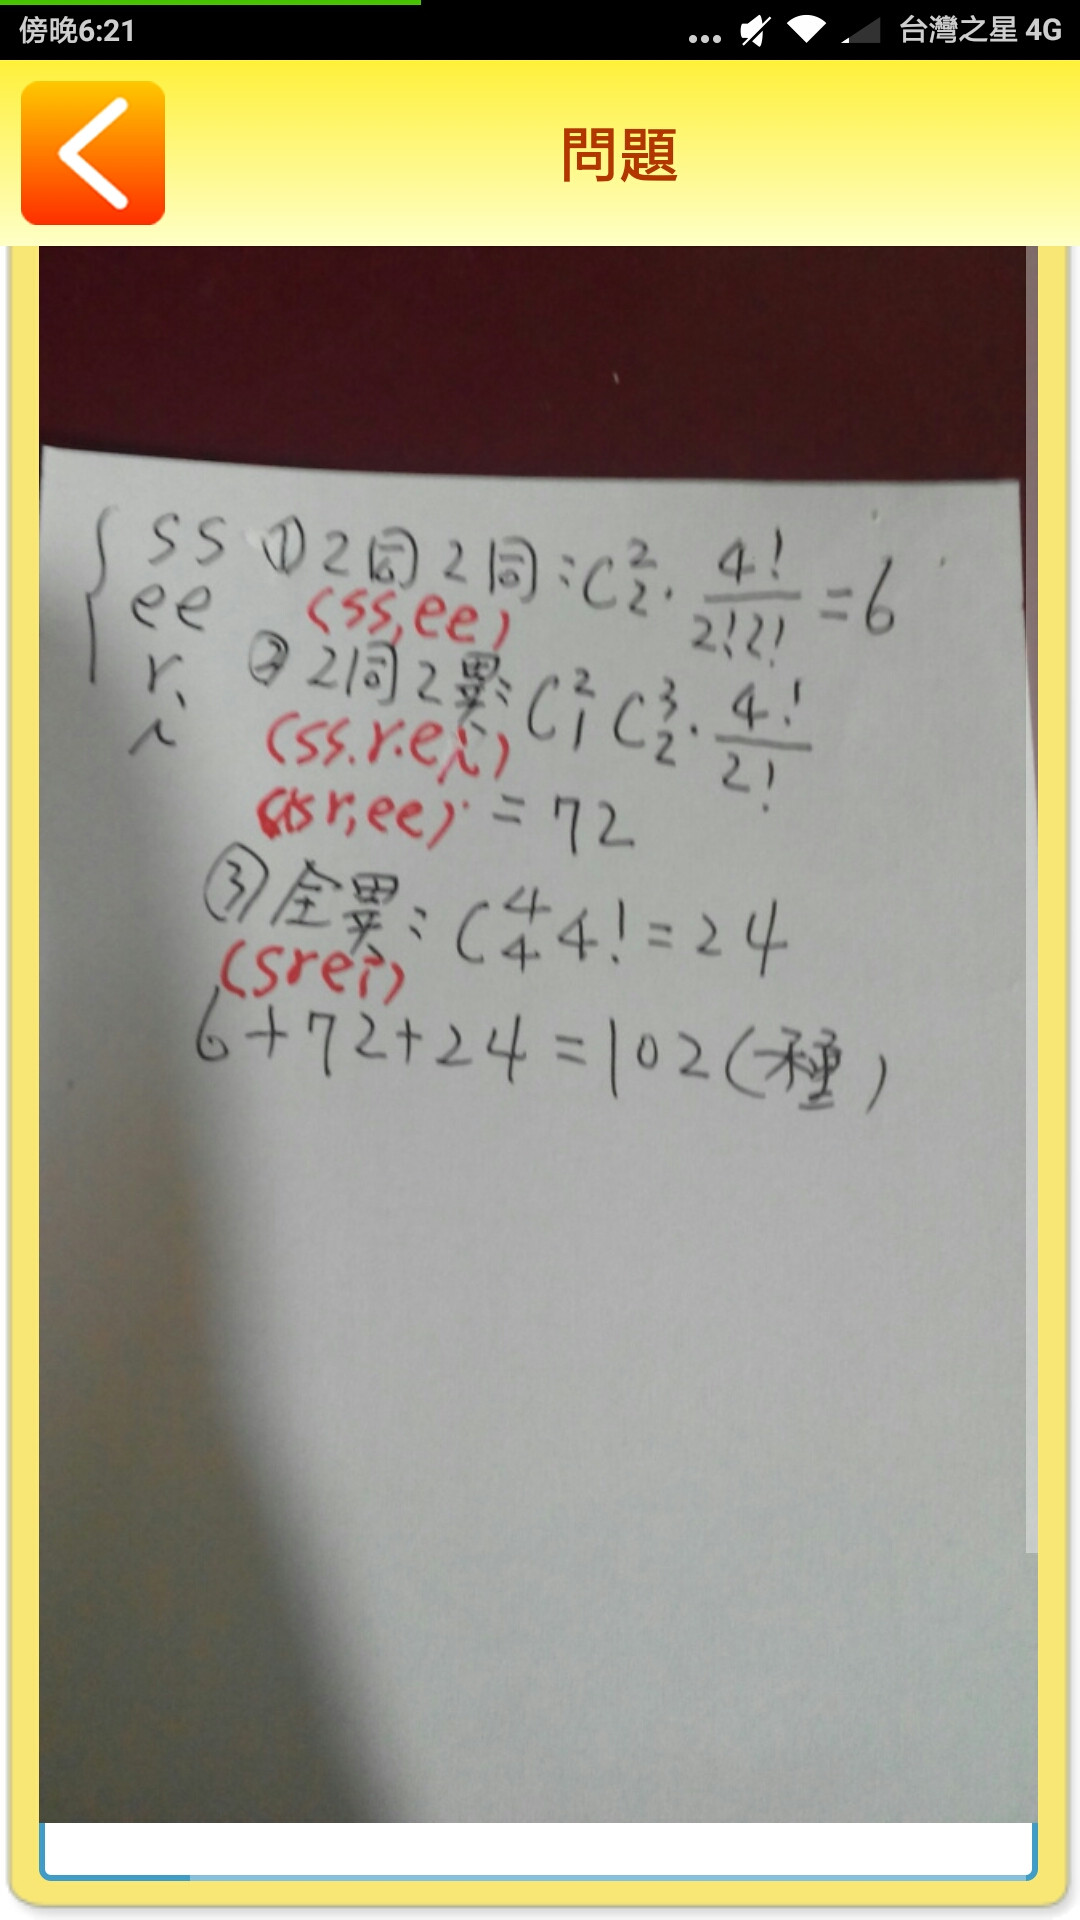 傍晚6:21 ... 台灣之星 4G
問題
ss ①2同2同:C²₂·4!/2!2!=6
ee (ss,ee)
r ②2同2異:C²₁C³₂·4!/2!
i (ss.r.e,i)
r,ee) =72
③全異:C⁴₄4!=24
(srei)
6+72+24=102(種)